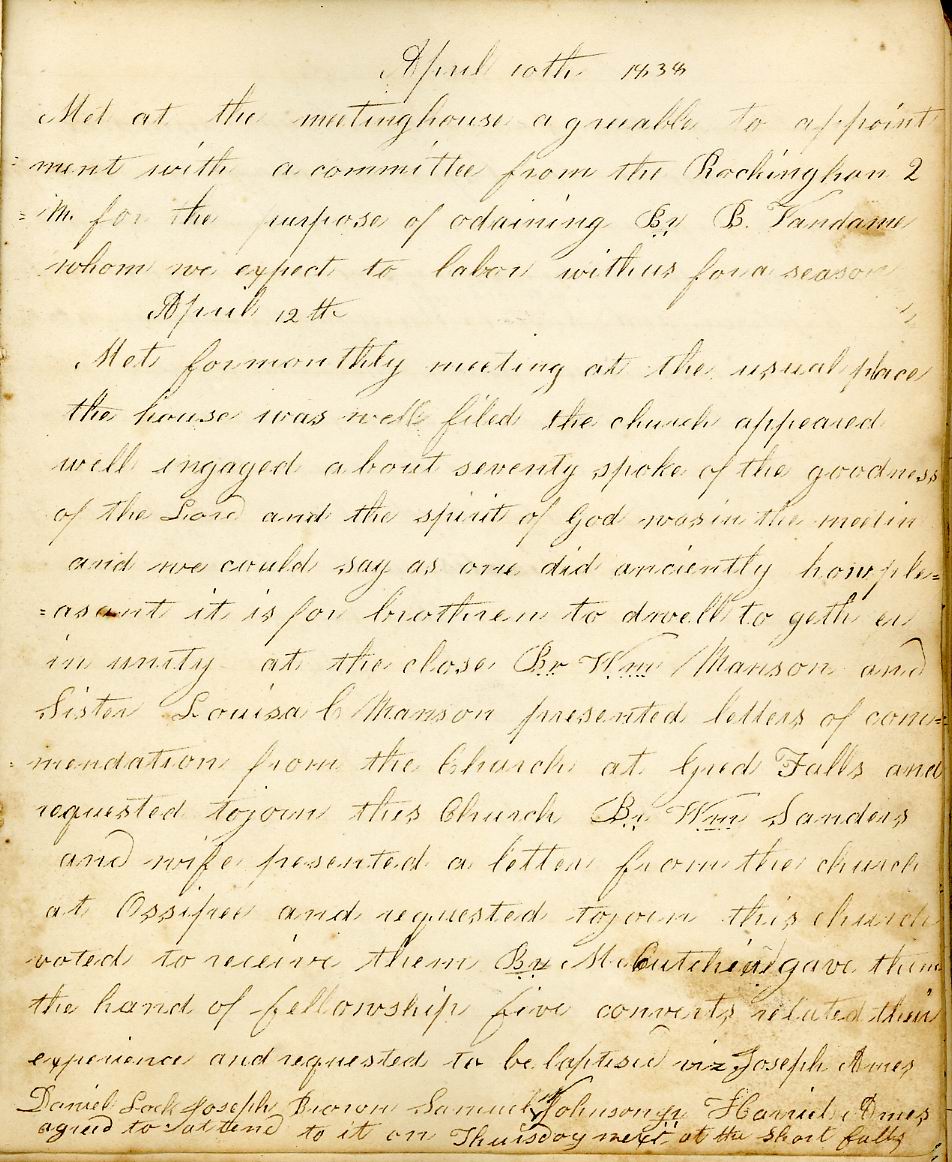 April 10th 1838
Met at the meetinghouse agreeable to appoint
ment with a committee from the Rockinghan 2
= M. for the purpose of odaining Br B. Vandame
whom we expect to labor with us for a season
April 12th
Met for monthly meeting at the usual place
the house was well filed the church appeared
well ingaged about seventy spoke of the goodness
of the Lord and the spirit of God was in the meetin
and we could say as one did anciently how ple=
=asant it is for brothren to dwell to geth er
in unity at the close Br Wm Manson and
Sister Louisa C Manson presented letters of com=
mendation from the Church at Falls and
requested to join this Church Br Wm Sanders
and wife presented a letter from the church
at Ossipee and requested to join this church
voted to receive them Br McCutchen gave them
the hand of fellowship five converts related their
experience and requested to be baptised viz Joseph Ames
Daniel Lock Joseph Brown Samuel Johnson jr Harriet Ames
agreed to attend to it on Thursday next at the Short falls